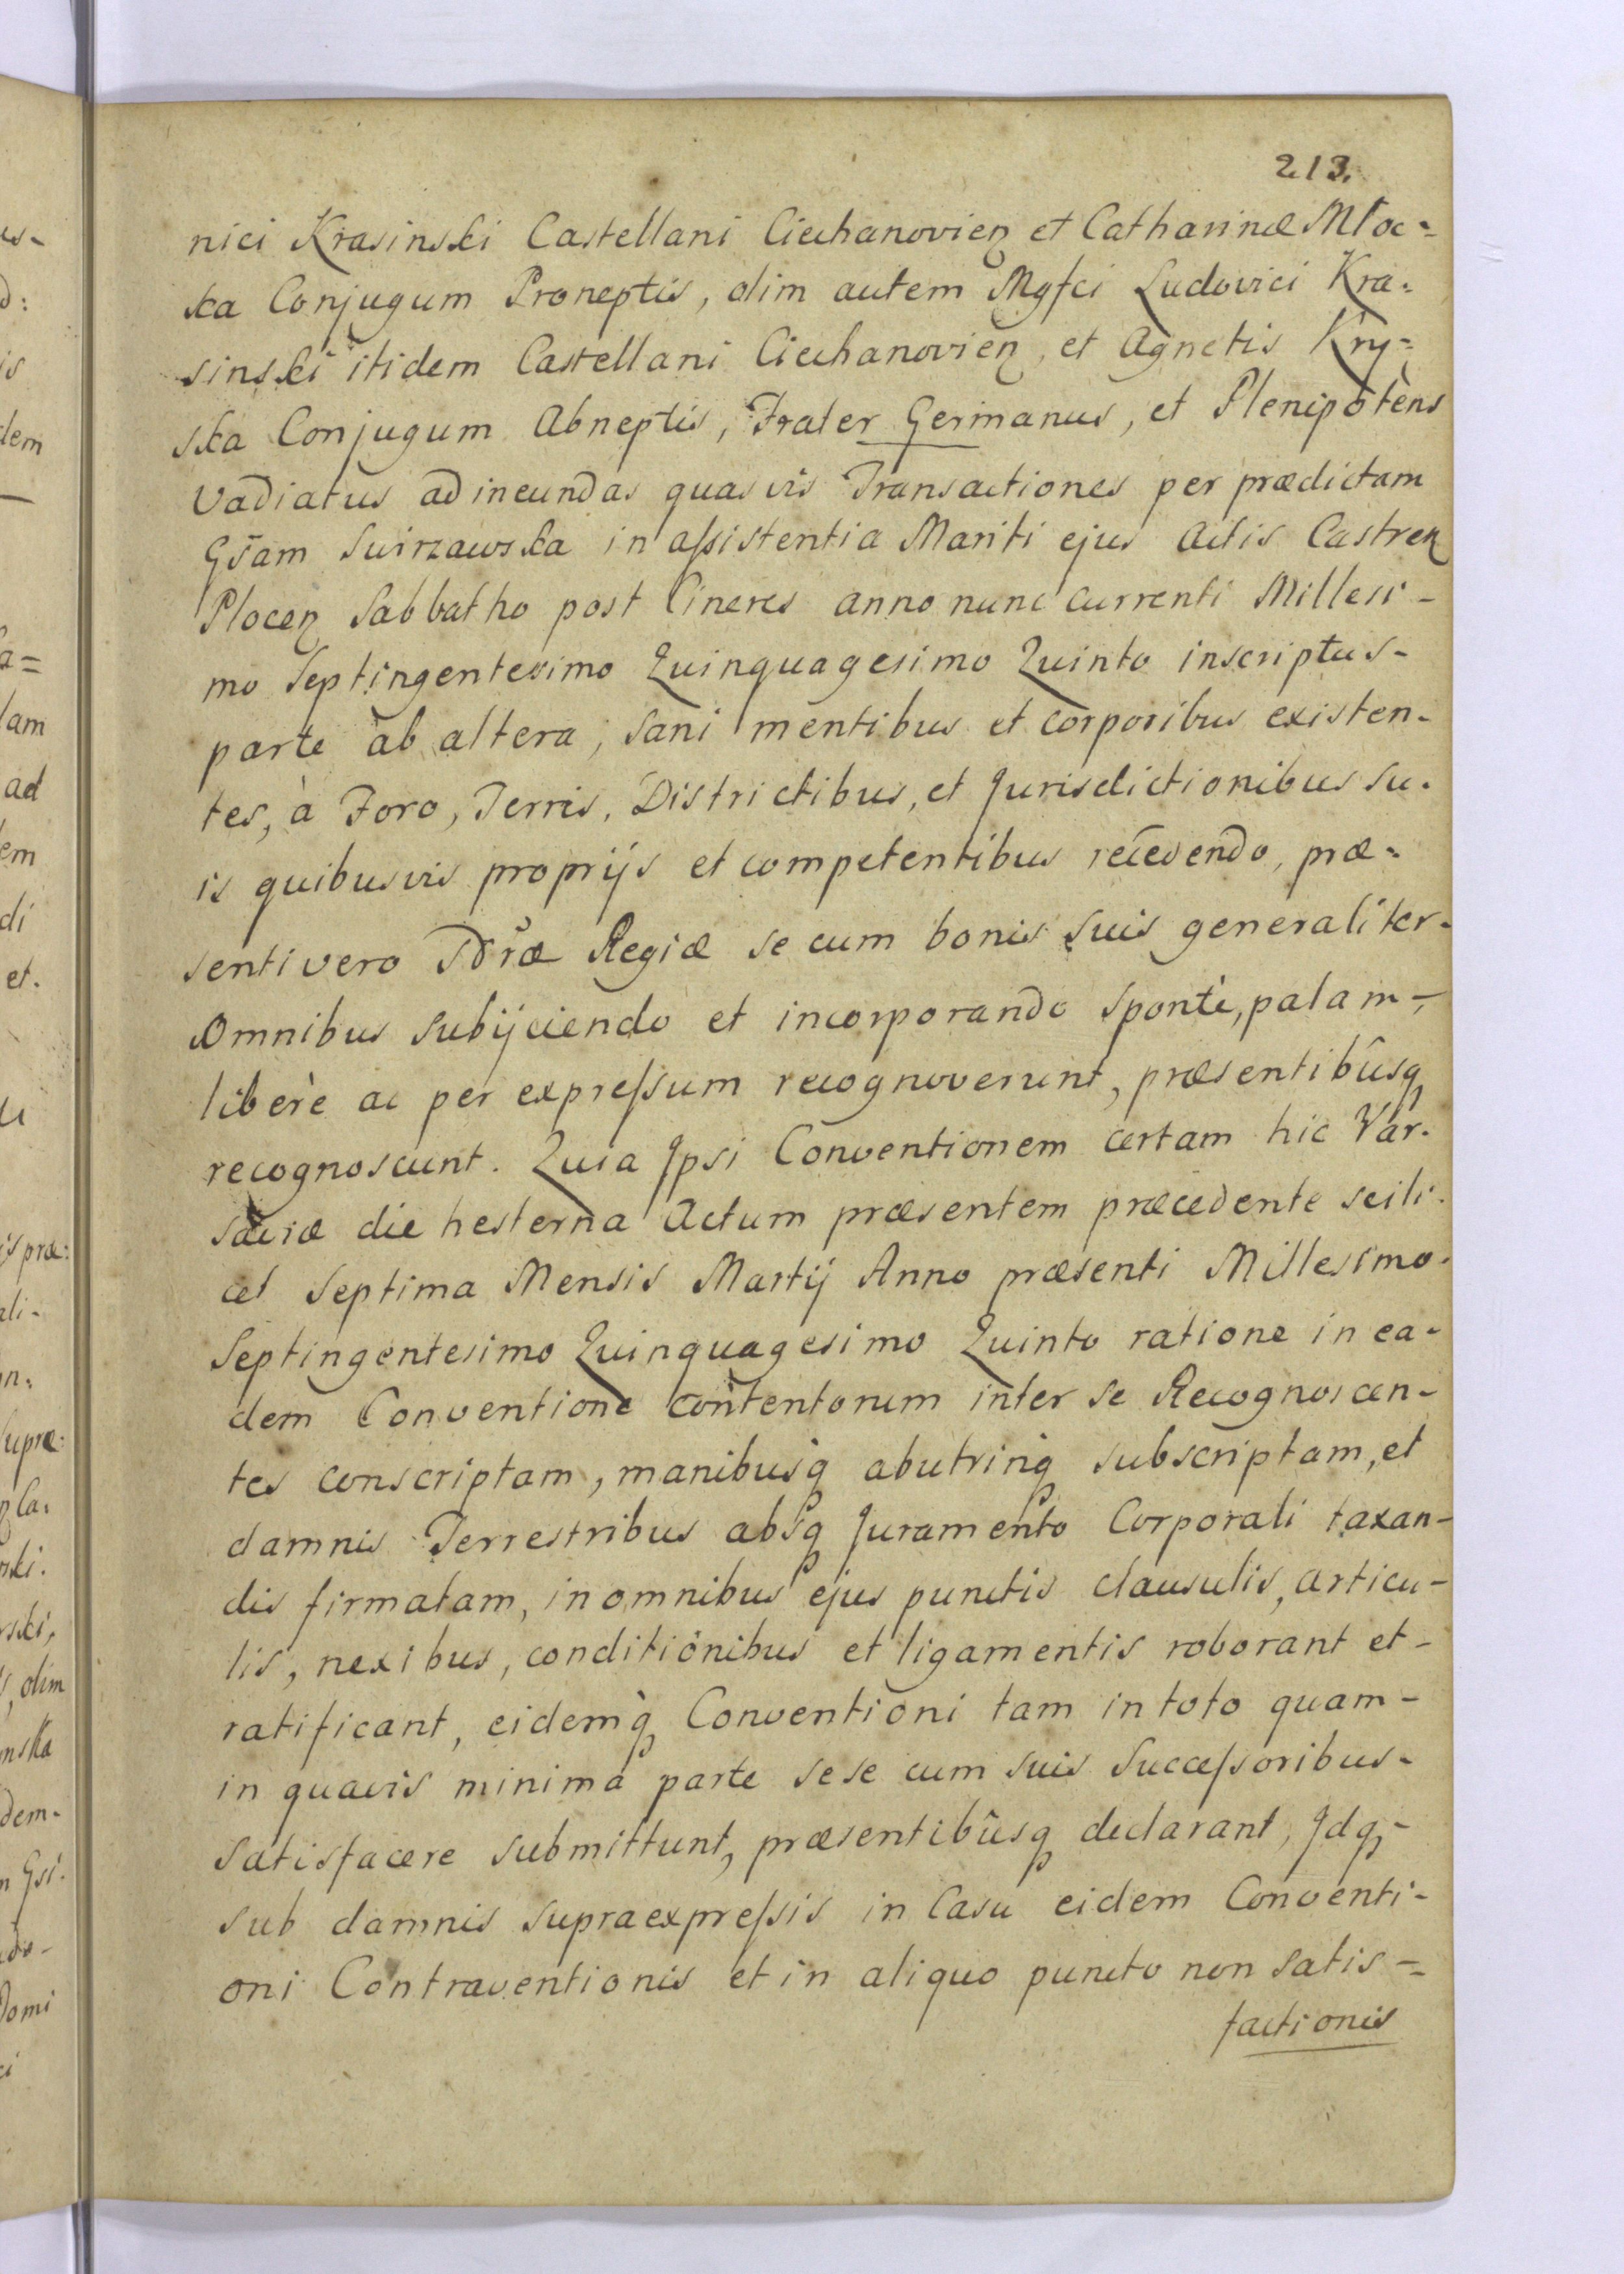 213.
nici Krasinski Castellani Ciechanovien̄ et Catharinæ Młoc=
ka Conjugum Proneptis, olim autem Mgfci Ludovici Kra-
sinski itidem Castellani Ciechanovien̄, et Agnetis Kry=
ska Conjugum Abneptis, Frater Germanus, et Plenipotens
Vadiatus ad ineundas quasvis Transactiones per prædictam
Gsam Swirzawska in assistentia Mariti ejus Actis Castren̄
Plocen̄ Sabbatho post Cineres anno nunc currenti Millesi-
mo Septingentesimo Quinquagesimo Quinto inscriptus-
parte ab altera, sani mentibus et corporibus existen-
tes, à Foro, Terris, Districtibus, et Jurisdictionibus su-
is quibusvis proprijs et competentibus recedendo, præ-
senti vero Pdræ Regiæ se cum bonis suis generaliter-
Omnibus subijciendo et incorporando sponte, palam-,
liberè ac per expressum recognoverunt, præsentibûsq
recognoscunt. Quia Ipsi Conventionem certam hic Var-
saviæ die hesterna Actum præsentem præcedente scili-
cet Septima Mensis Martij Anno præsenti Millesimo-
Septingentesimo Quinquagesimo Quinto ratione in ea-
dem Conventione contentorum inter se Recognoscen-
tes conscriptam, manibusq abutrinq subscriptam, et
damnis Terrestribus absq Juramento Corporali taxan-
dis firmatam, in omnibus ejus punctis clausulis, articu-
lis, nexibus, conditiônibus et ligamentis roborant et-
ratificant, eidemq̀ Conventioni tam in toto quam-
in quavis minima parte sese cum suis Successoribus-
satisfacere submittunt, præsentibûsq declarant, Idq-
sub damnis supraexpressis in Casu eidem Conventi-
oni Contraventionis et in aliquo puncto non satis-=
factionis